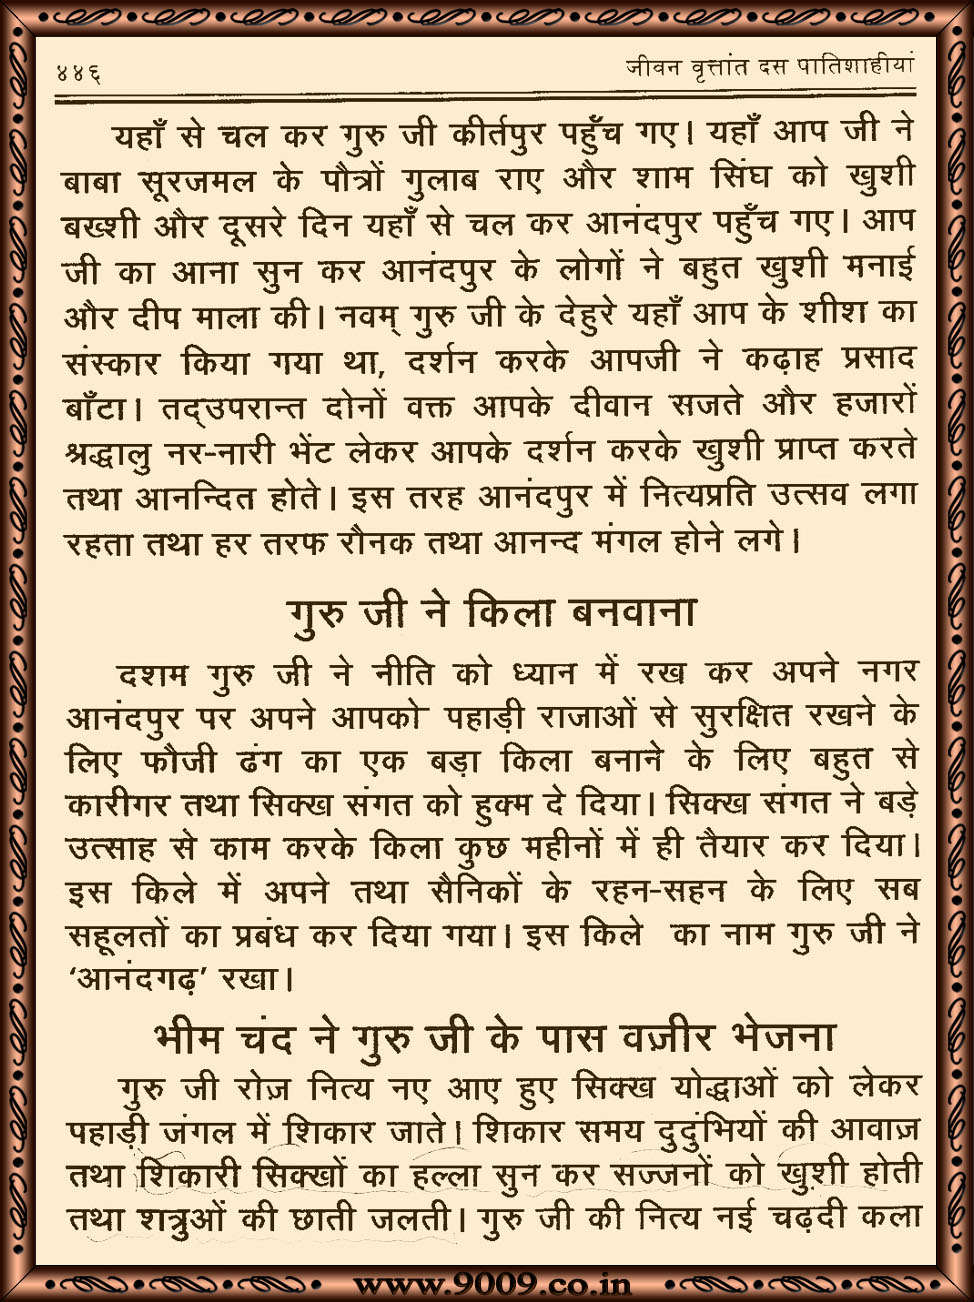 ४४६
जीवन वृत्तांत दस पातिशाहीयां
यहाँ से चल कर गुरु जी कीर्तपुर पहुँच गए। यहाँ आप जी ने
बाबा सूरजमल के पौत्रों गुलाब राए और शाम सिंघ को खुशी
बख्शी और दूसरे दिन यहाँ से चल कर आनंदपुर पहुँच गए। आप
जी का आना सुन कर आनंदपुर के लोगों ने बहुत खुशी मनाई
और दीप माला की। नवम् गुरु जी के देहुरे यहाँ आप के शीश का
संस्कार किया गया था, दर्शन करके आपजी ने कढ़ाह प्रसाद
बाँटा। तद्उपरान्त दोनों वक्त आपके दीवान सजते और हजारों
श्रद्धालु नर-नारी भेंट लेकर आपके दर्शन करके खुशी प्राप्त करते
तथा आनन्दित होते। इस तरह आनंदपुर में नित्यप्रति उत्सव लगा
रहता तथा हर तरफ रौनक तथा आनन्द मंगल होने लगे।
गुरु जी ने किला बनवाना
दशम गुरु जी ने नीति को ध्यान में रख कर अपने नगर
आनंदपुर पर अपने आपको पहाड़ी राजाओं से सुरक्षित रखने के
लिए फौजी ढंग का एक बड़ा किला बनाने के लिए बहुत से
कारीगर तथा सिक्ख संगत को हुक्म दे दिया। सिक्ख संगत ने बड़े
उत्साह से काम करके किला कुछ महीनों में ही तैयार कर दिया।
इस किले में अपने तथा सैनिकों के रहन-सहन के लिए सब
सहूलतों का प्रबंध कर दिया गया। इस किले का नाम गुरु जी ने
‘आनंदगढ़’ रखा।
भीम चंद ने गुरु जी के पास वज़ीर भेजना
गुरु जी रोज़ नित्य नए आए हुए सिक्ख योद्धाओं को लेकर
पहाड़ी जंगल में शिकार जाते। शिकार समय दुदुंभियों की आवाज़
तथा शिकारी सिक्खों का हल्ला सुन कर सज्जनों को खुशी होती
तथा शत्रुओं की छाती जलती। गुरु जी की नित्य नई चढ़दी कला
www.9009.co.in